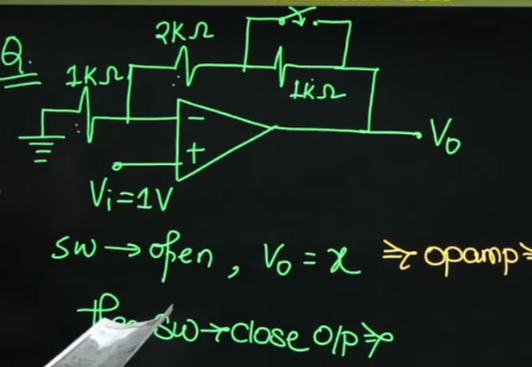 Q.
2KΩ
1KΩ
1KΩ
-
+
Vo
Vi=1V
SW → open, Vo = x ⇒ opamp ⇒
SW → close O/P ⇒